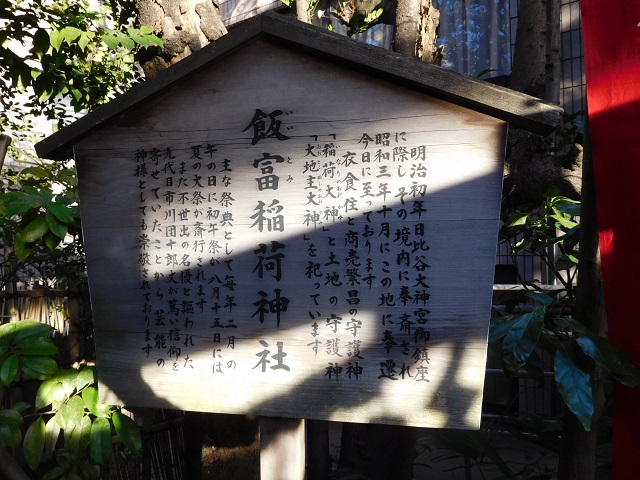 明治初年日比谷大神宮御鎮座
に際し その境内に奉斎され
昭和三年十月にこの地に奉遷
今日に至っております
衣食住と商売繁昌の守護神
「稲荷大神」と土地の守護神
「大地主大神」を祀っています
飯富稲荷神社
いとみ
主な祭典として毎年二月の
午の日に初午祭が八月十五日には
夏の大祭が斎行されます
また不世出の名優と謳われた
九代目市川団十郎丈が篤い信仰を
寄せていたことから 芸能の
神様としても崇敬されております